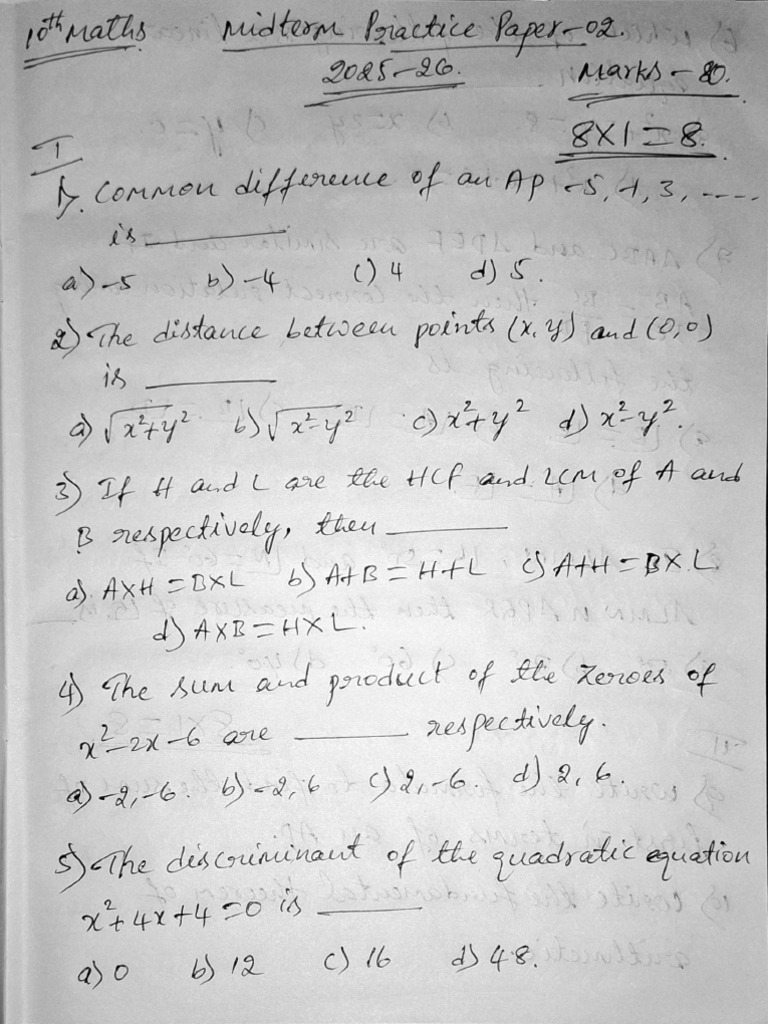 10th Maths Midterm Practice Paper-02.
2025-26. Marks - 80.
8X1=8.
I
1). Common difference of an AP -5, -1, 3, ----
is ______
a) -5 b) -4 c) 4 d) 5.
2) The distance between points (x, y) and (0,0)
is ______
a) √x²+y² b) √x²-y² c) x²+y² d) x²-y².
3) If H and L are the HCF and LCM of A and
B respectively, then ______
a). AXH = BXL b) A+B = H+L c) A+H = BXL
d) AXB = HXL.
4) The sum and product of the zeroes of
x²-2x-6 are ______ respectively.
a) -2,-6. b) -2, 6 c) 2,-6 d) 2, 6.
5) The discriminant of the quadratic equation
x²+4x+4=0 is ______
a) 0 b) 12 c) 16 d) 48.